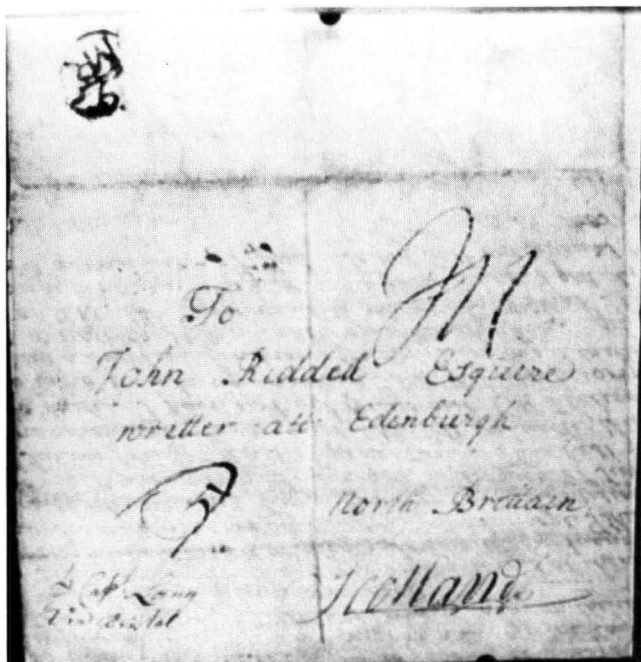 To
John Ridded Esquire
writter att Edinburgh
North Breddin
Scotland
Capt Lang